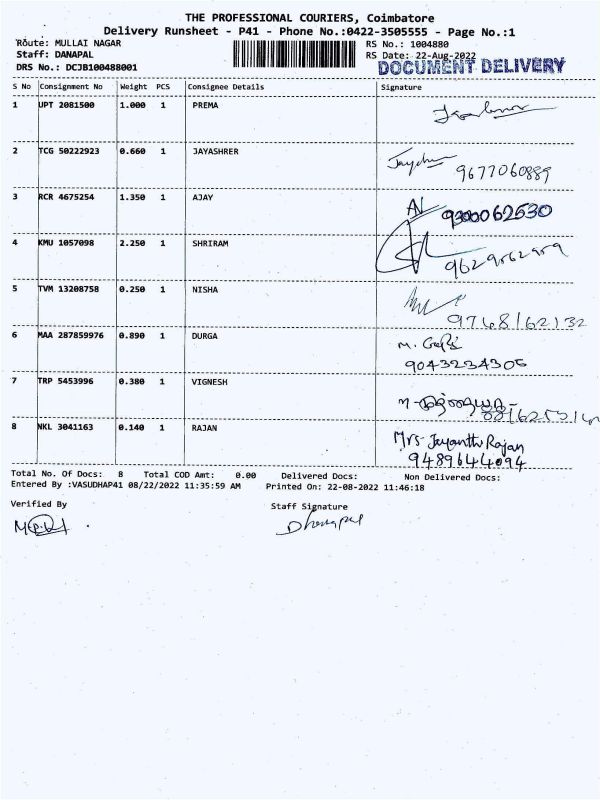 THE PROFESSIONAL COURIERS, Coimbatore
Delivery Runsheet - P41 - Phone No.:0422-3505555 - Page No.:1
Route: MULLAI NAGAR
RS No.: 1004880
Staff: DANAPAL
RS Date: 22-Aug-2022
DRS No.: DCJB100488001
DOCUMENT DELIVERY
S No Consignment No Weight PCS Consignee Details Signature
1 UPT 2081500 1.000 1 PREMA
2 TCG 50222923 0.660 1 JAYASHRER
9677060889
3 RCR 4675254 1.350 1 AJAY
4 KMU 1057098 2.250 1 SHRIRAM
5 TVM 13208758 0.250 1 NISHA
9768162132
6 MAA 287859976 0.890 1 DURGA
9043234305
7 TRP 5453996 0.380 1 VIGNESH
8 NKL 3041163 0.140 1 RAJAN
Mrs Jayanthi Rajan
9489644094
Total No. Of Docs: 8 Total COD Amt: 0.00 Delivered Docs: Non Delivered Docs:
Entered By :VASUDHAP41 08/22/2022 11:35:59 AM Printed On: 22-08-2022 11:46:18
Verified By Staff Signature